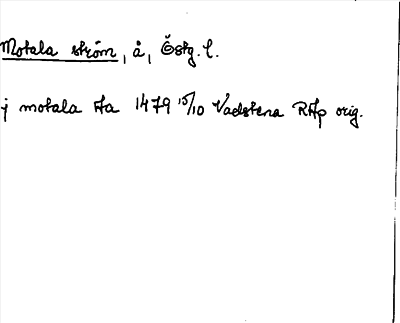 Motala ström, å, Östg. l.
j motala Aa 1479 15/10 Vadstena RAp orig.